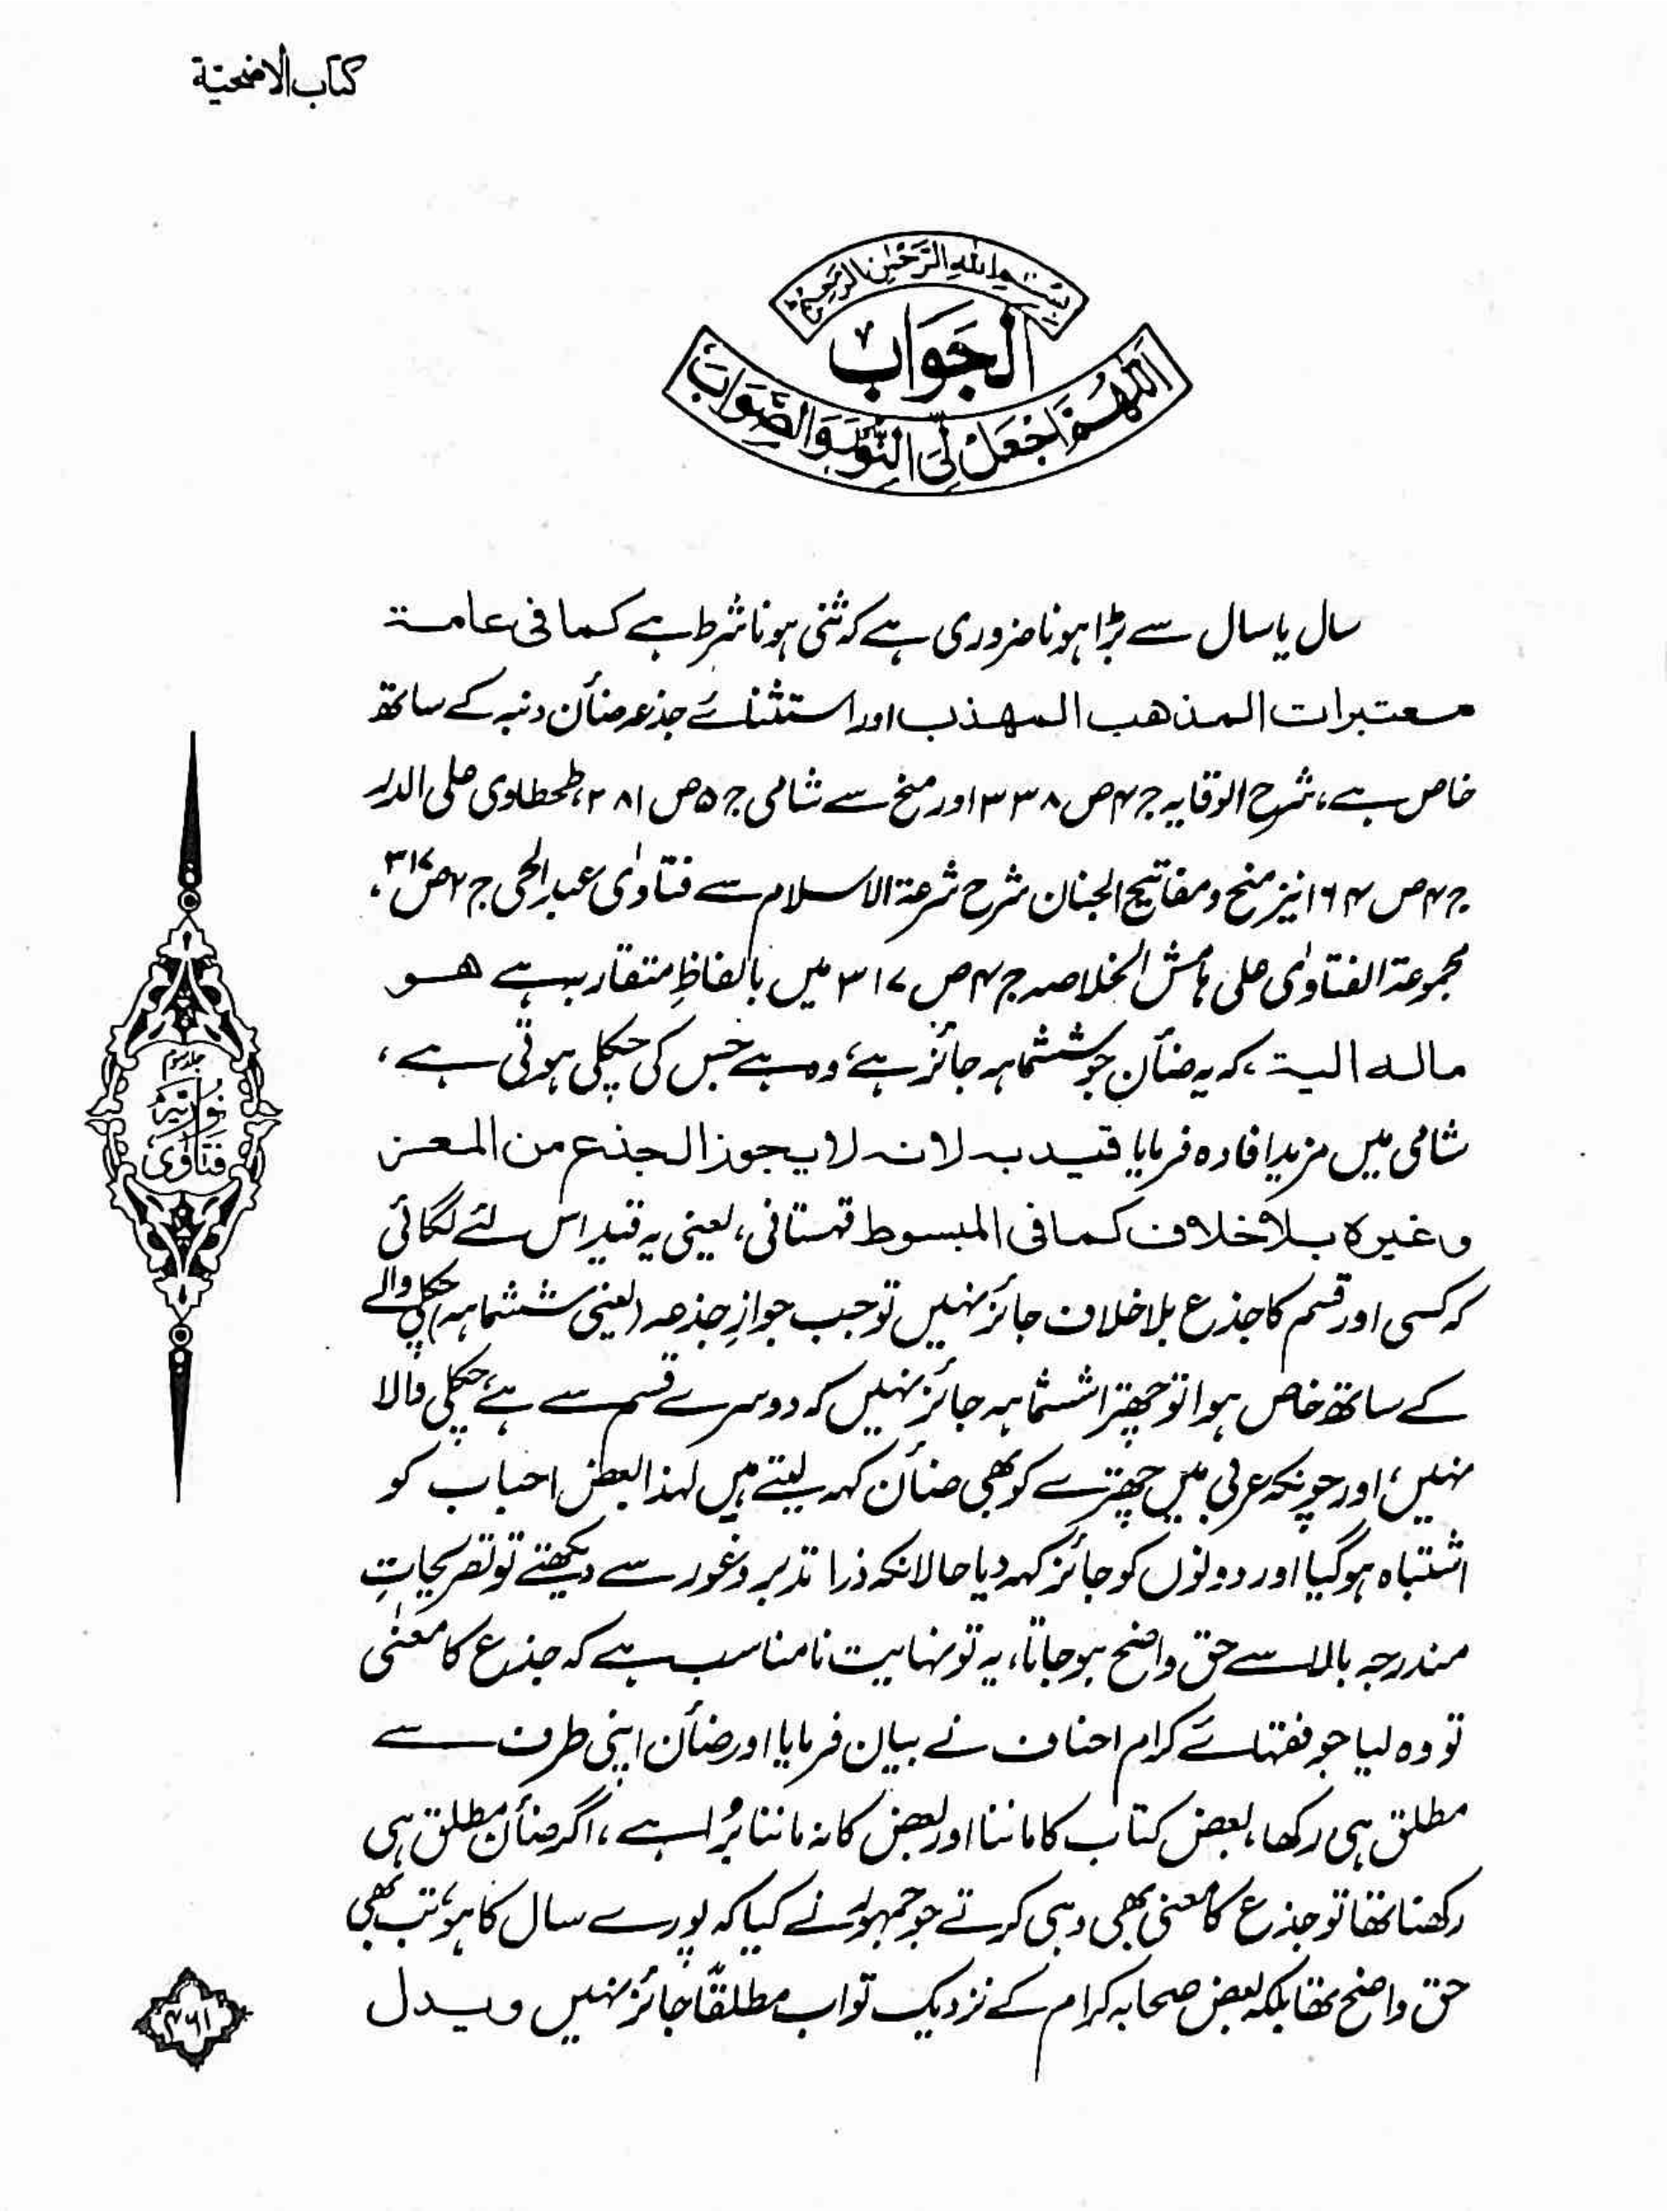 کتاب الاضحیّۃ
بِسْمِ اللهِ الرَّحْمٰنِ الرَّحِیْمِ
اَلجَوَابُ
اَللّٰهُمَّ اجْعَلْ لِّیَ النُّوْرَ وَالصَّوَابَ
سال یا سال سے بڑا ہونا ضروری ہے کہ ثنی ہونا شرط ہے کما فی عامۃ
معتبرات المذھب المھذب اور استثنائے جذعہ ضأن دنبہ کے ساتھ
خاص ہے، شرح الوقایہ ج ۴ ص ۳۳۸ اور منح سے شامی ج ۵ ص ۲۸۱، طحطاوی علی الدر
ج ۴ ص ۱۶۴ نیز منح و مفاتیح الجنان شرح شرعۃ الاسلام سے فتاوٰی عبدالحی ج ۲ ص ۳۱۷،
مجموعۃ الفتاوٰی علی ہامش الخلاصہ ج ۴ ص ۳۱۷ میں بالفاظِ متقاربہ ہے ھو
مالہ الیۃ، کہ یہ ضأن جو ششماہہ جائز ہے، وہ ہے جس کی چکلی ہوتی ہے،
شامی میں مزید افادہ فرمایا قید بہ لانہ لا یجوز الجذع من المعز
وغیرہ بلا خلاف کما فی المبسوط قہستانی، یعنی یہ قید اس لئے لگائی
کہ کسی اور قسم کا جذع بلا خلاف جائز نہیں تو جب جوازِ جذعہ (یعنی ششماہہ) چکلی والے
کے ساتھ خاص ہوا تو چھترا ششماہہ جائز نہیں کہ دوسرے قسم سے ہے، چکلی والا
نہیں، اور چونکہ عربی میں چھترے کو بھی ضأن کہہ لیتے ہیں لہذا بعض احباب کو
اشتباہ ہوگیا اور دونوں کو جائز کہہ دیا حالانکہ ذرا تدبر و غور سے دیکھتے تو تصریحاتِ
مندرجہ بالا سے حق واضح ہو جاتا، یہ تو نہایت نامناسب ہے کہ جذع کا معنٰی
تو وہ لیا جو فقہائے کرام احناف نے بیان فرمایا اور ضأن اپنی طرف سے
مطلق ہی رکھا، بعض کتاب کا ماننا اور بعض کا نہ ماننا بُرا ہے، اگر ضأن مطلق ہی
رکھنا تھا تو جذع کا معنی بھی وہی کرتے جو جمہور نے کیا کہ پورے سال کا ہو، تب بھی
حق واضح تھا بلکہ بعض صحابہ کرام کے نزدیک تو اب مطلقاً جائز نہیں ویدل
جلد سوم
نُورِیَّہ
فَتَاوٰی
۴۶۱